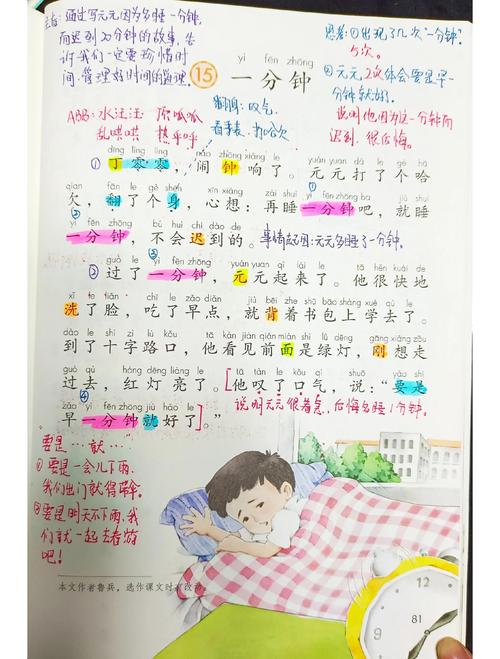 主旨:通过写元元因为多睡一分钟,
而迟到20分钟的故事,告
诉我们一定要珍惜时
间,管理好时间的道理。
思考:①出现了几次“一分钟”?
5次。
②元元2次体会要是早一
分钟就好了。
说明他因为这一分钟而
迟到,很后悔。
yì fēn zhōng
15 一分钟
ABB:水汪汪 顶呱呱
乱哄哄 热乎乎
翻身 叹气
看手表 打哈欠
dīng líng líng nào zhōng xiǎng le yuán yuan dǎ le gè hā
① 丁零零,闹钟响了。元元打了个哈
qian fān le gè shēn xīn xiǎng zài shuì yì fēn zhōng ba jiù shuì
欠,翻了个身,心想:再睡一分钟吧,就睡
yì fēn zhōng bú huì chí dào de
② 一分钟,不会迟到的。 事情起因:元元多睡了一分钟。
③
guò le yì fēn zhōng yuán yuan qǐ lái le tā hěn kuài de
② 过了一分钟,元元起来了。他很快地
xǐ le liǎn chī le zǎo diǎn jiù bēi zhe shū bāo shàng xué qù le
洗了脸,吃了早点,就背着书包上学去了。
dào le shí zì lù kǒu tā kàn jiàn qián miàn shì lǜ dēng gāng xiǎng zǒu
到了十字路口,他看见前面是绿灯,刚想走
guò qù hóng dēng liàng le tā tàn le kǒu qì shuō yào shi
过去,红灯亮了。[他叹了口气,说:“要是
④
zǎo yì fēn zhōng jiù hǎo le
早一分钟就好了]。” 说明元元很着急,后悔多睡1分钟。
要是……就……
①要是一会儿下雨,
我们出门就得带伞。
②要是明天不下雨,我
们就一起去春游
吧!
本文作者鲁兵,选作课文时有改动。
12
3
6
9
81